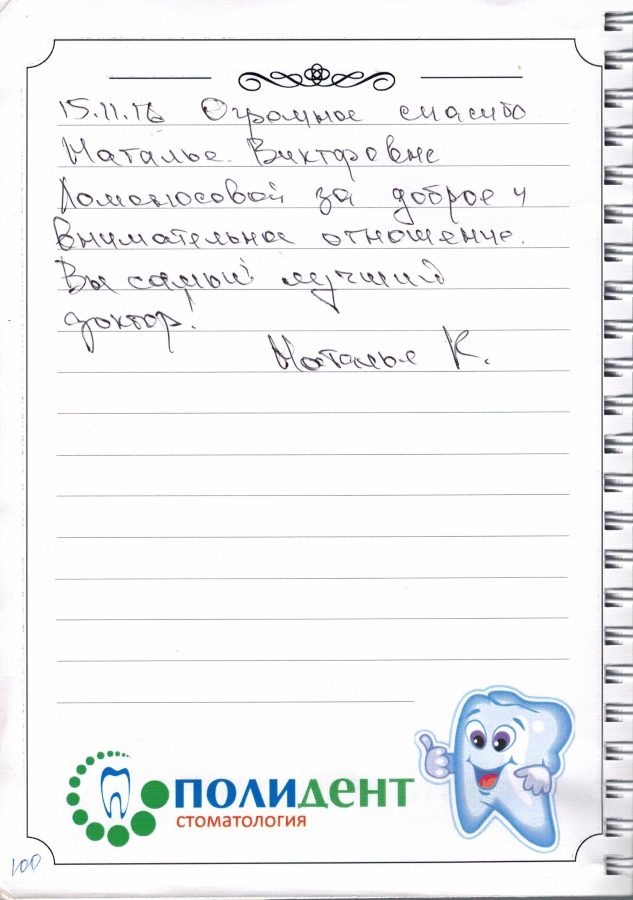 15.11.16 Огромное спасибо
Наталье Викторовне
Ломоносовой за доброе и
внимательное отношение.
Вы самый лучший
доктор!
Наталья К.
ПОЛИДЕНТ
СТОМАТОЛОГИЯ
100